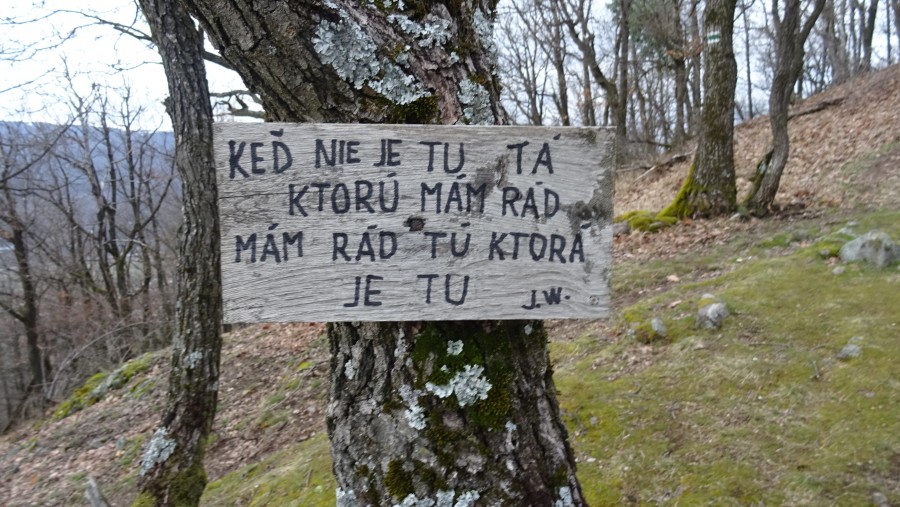 KEĎ NIE JE TU TÁ
KTORÚ MÁM RÁD
MÁM RÁD TÚ KTORÁ
JE TU J.W.